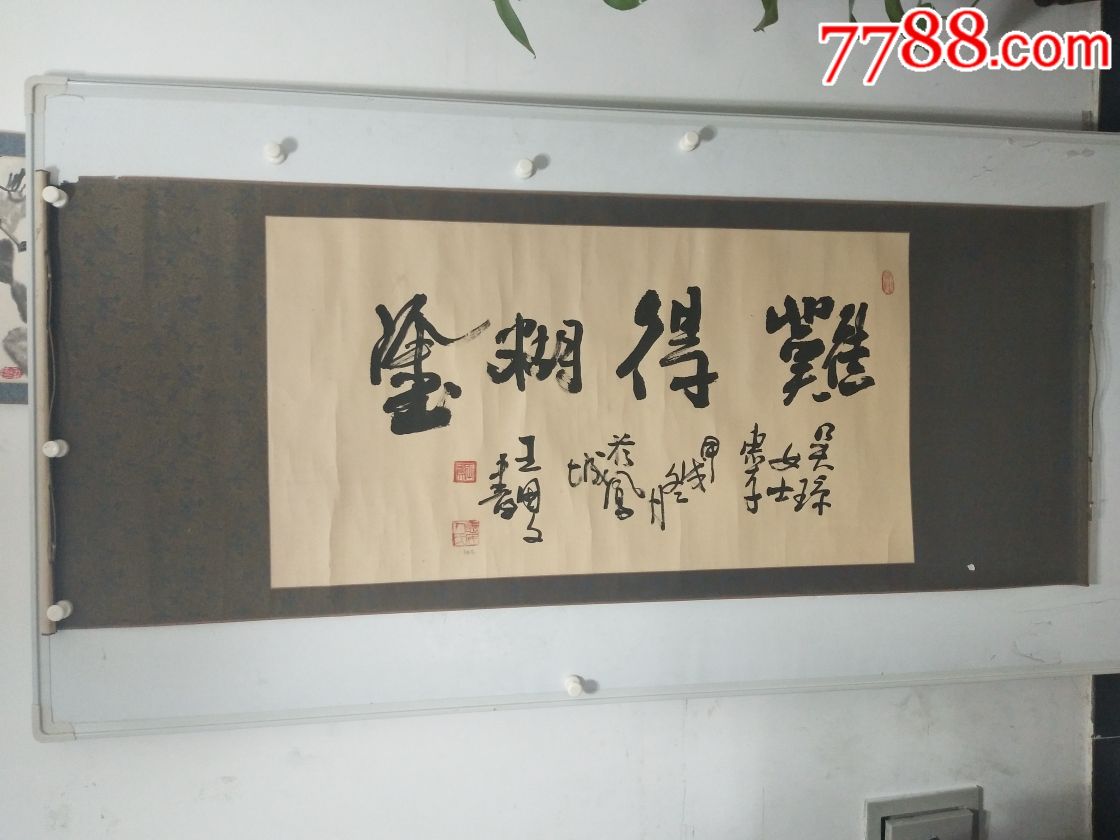 7788.com
難得糊塗
吳琼
女士
惠存
甲戌
冬月
於鳳
城
王
書